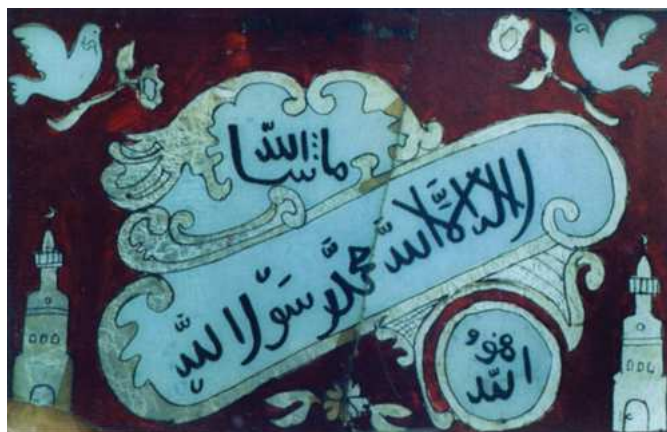 ماشاالله
لااله الاالله محمد رسول الله
هو
الله